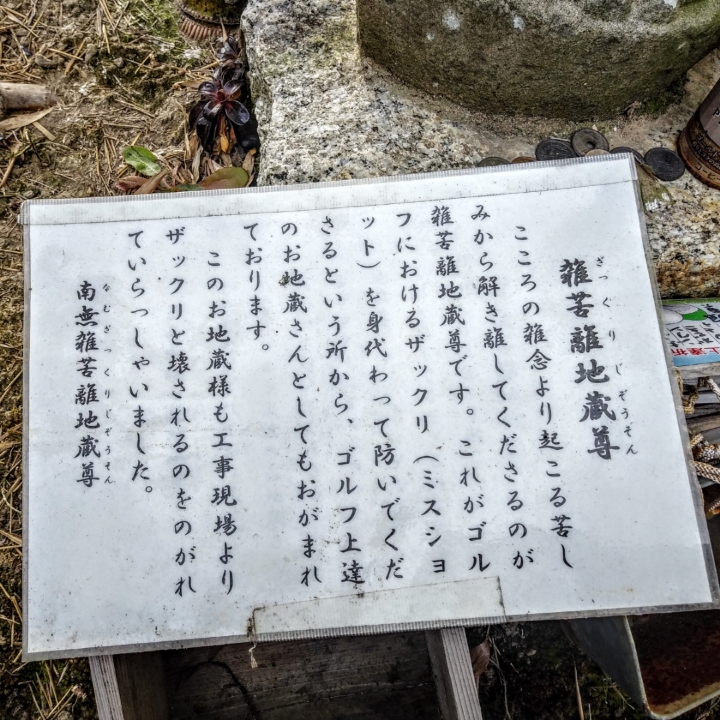 雑苦離地蔵尊
ざっくりじぞうそん
こころの雑念より起こる苦し
みから解き離してくださるのが
雑苦離地蔵尊です。これがゴル
フにおけるザックリ（ミスショ
ット）を身代わって防いでくだ
さるという所から、ゴルフ上達
のお地蔵さんとしてもおがまれ
ております。
このお地蔵様も工事現場より
ザックリと壊されるのをのがれ
ていらっしゃいました。
南無雑苦離地蔵尊
なむざっくりじぞうそん